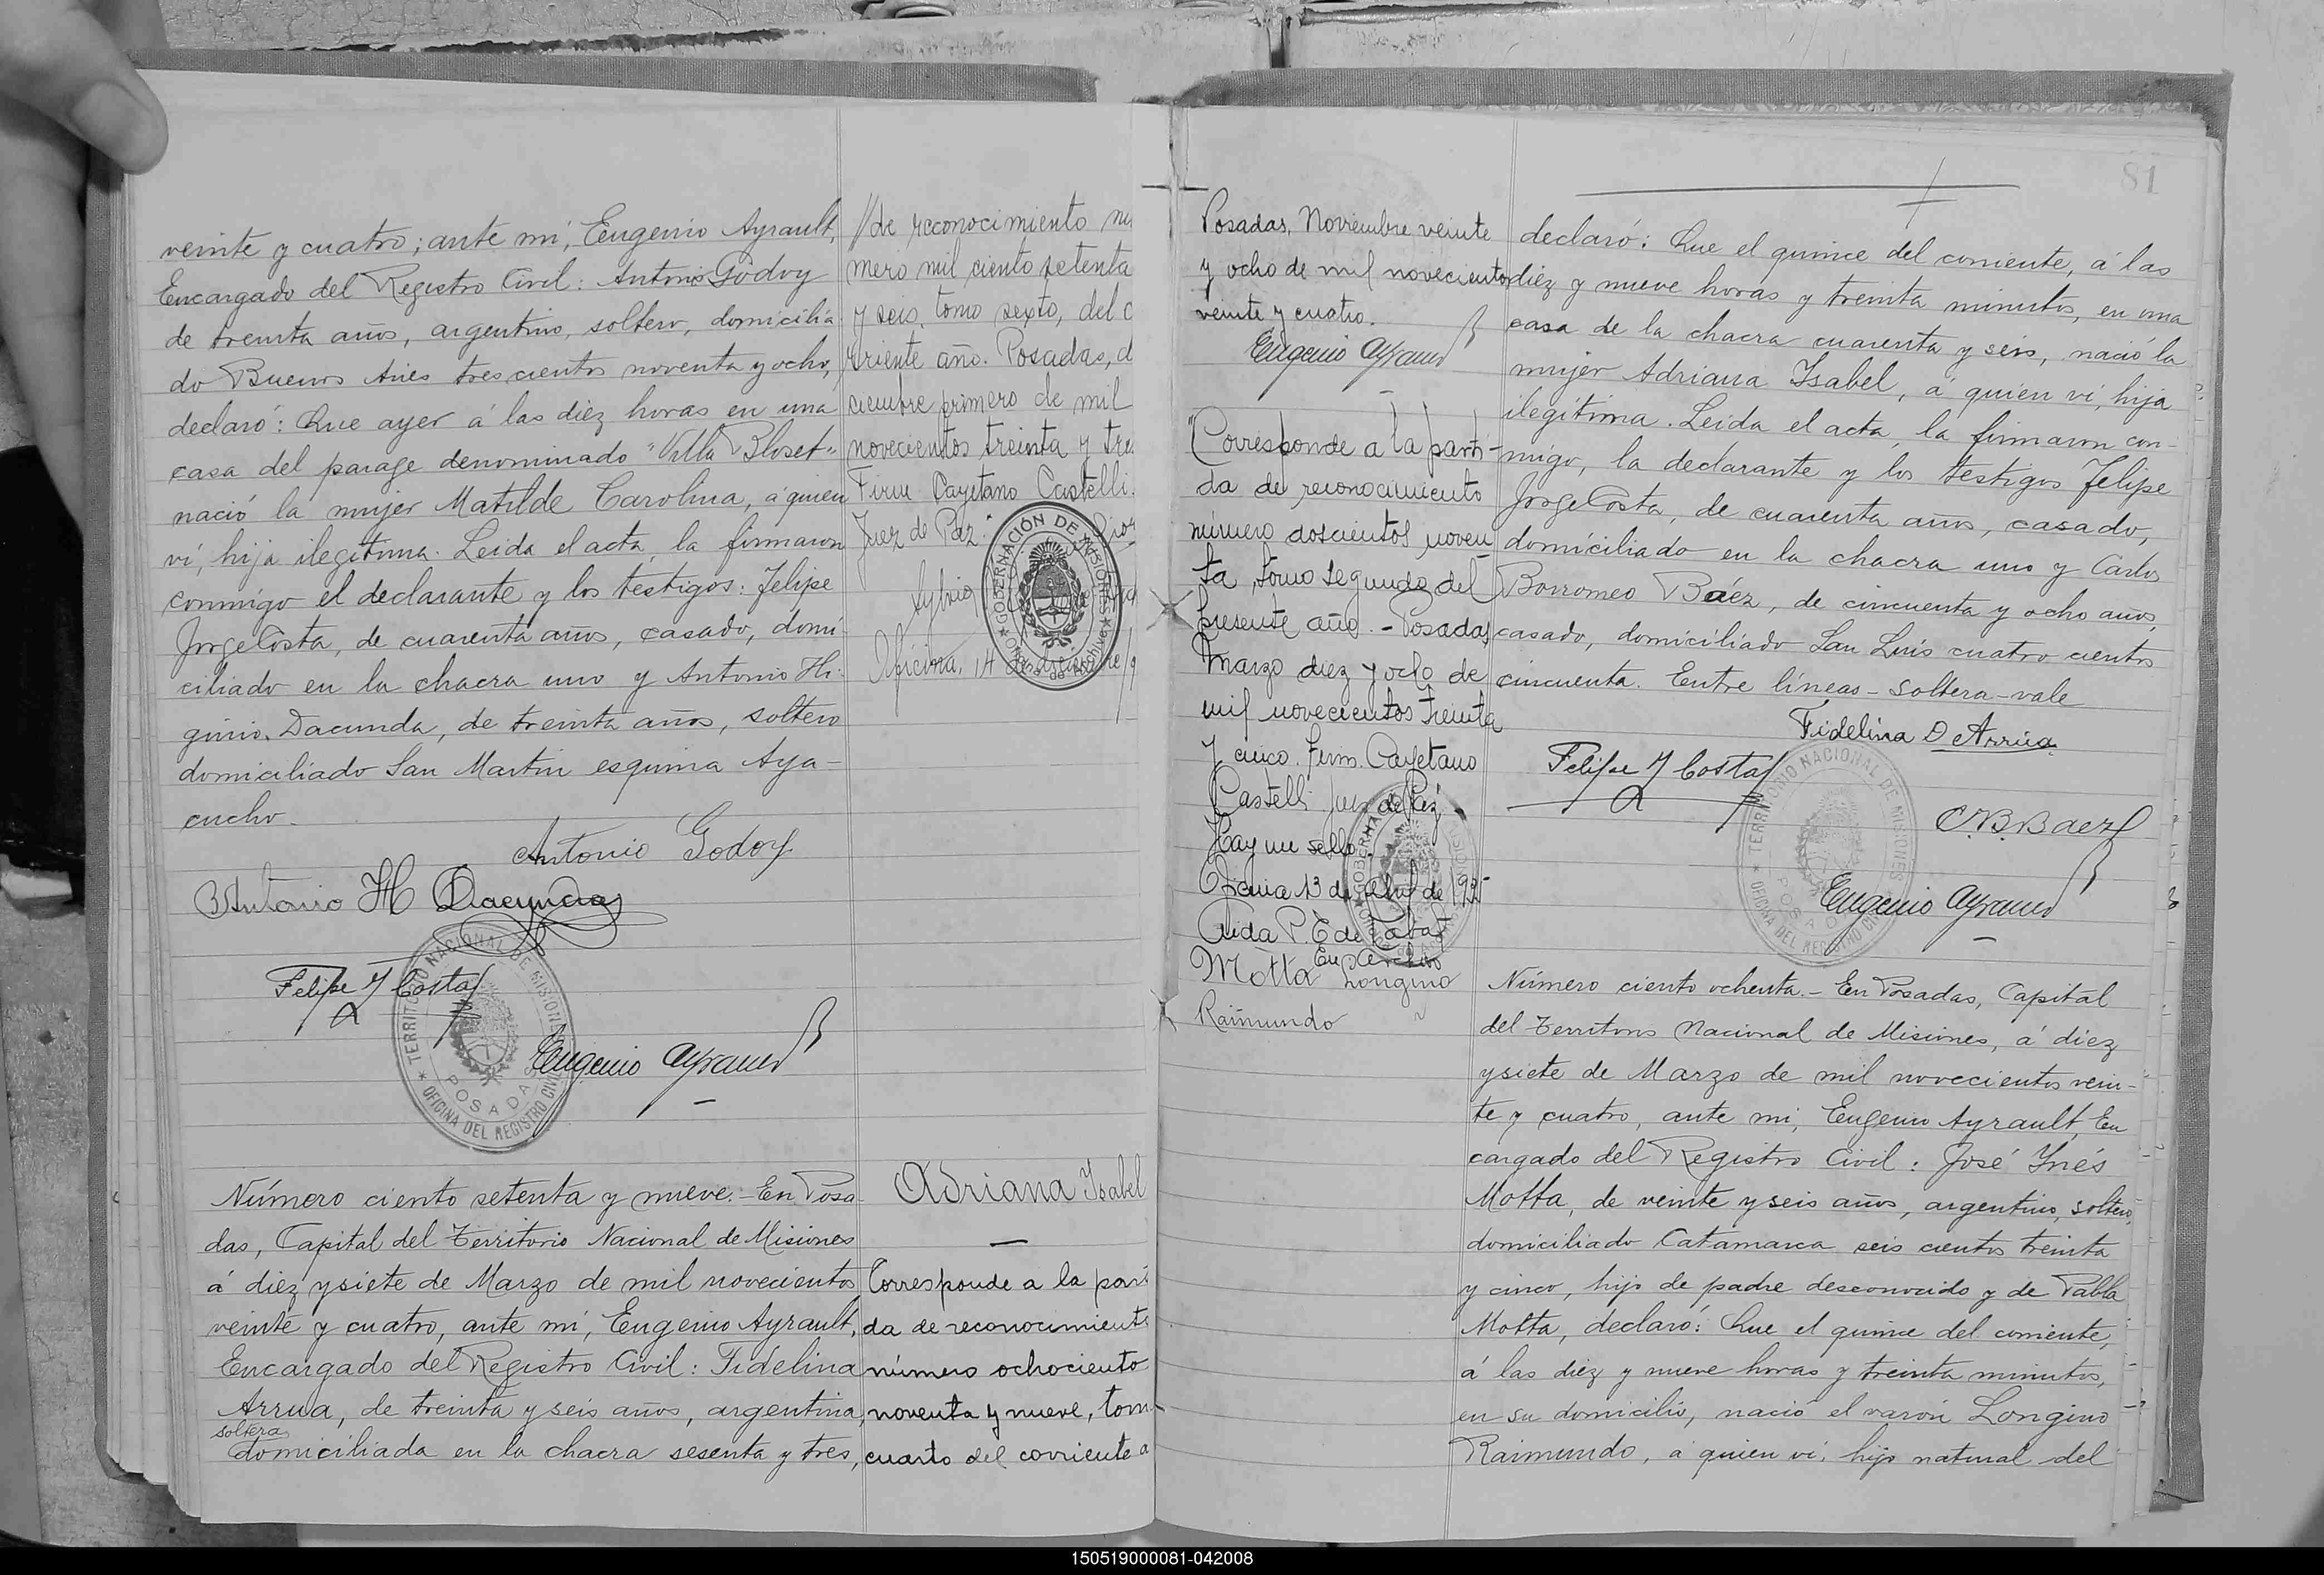 veinte y cuatro; ante mí, Eugenio Ayrault,
Encargado del Registro Civil: Antonio Godoy
de treinta años, argentino, soltero, domicilia
do Buenos Aires trescientos noventa y ocho,
declaró: Que ayer á las diez horas en una
casa del parage denominado "Villa Bloset"
nació la mujer Matilde Carolina, á quien
ví, hija ilegítima. Leida el acta, la firmaron
conmigo el declarante y los testigos: Felipe
Jorge Costa, de cuarenta años, casado, domi
ciliado en la chacra uno y Antonio Hi-
ginio Dacunda, de treinta años, soltero
domiciliado San Martin esquina Aya-
cucho.
Antonio Godoy
Antonio H Dacunda
Felipe J Costa
Eugenio Ayrault
TERRITORIO NACIONAL DE MISIONES
POSADAS
OFICINA DEL REGISTRO CIVIL
//de reconocimiento nu
mero mil ciento setenta
y seis, tomo sexto, del c
rriente año. Posadas, d
ciembre primero de mil
novecientos treinta y tre
Firm. Cayetano Castelli.
Juez de Paz."
GOBERNACIÓN DE MISIONES
Oficina, 14
Número ciento setenta y nueve.- En Posa-
das, Capital del Territorio Nacional de Misiones
á diez y siete de Marzo de mil novecientos
veinte y cuatro, ante mí, Eugenio Ayrault,
Encargado del Registro Civil: Fidelina
Arrua, de treinta y seis años, argentina,
soltera
domiciliada en la chacra sesenta y tres,
Adriana Isabel
Corresponde a la parti
da de reconocimiento
número ochociento
noventa y nueve, tom
cuarto del corriente a
81
Posadas, Noviembre veinte
y ocho de mil novecientos
veinte y cuatro.
Eugenio Ayrault
"Corresponde a la parti-
da de reconocimiento
número doscientos noven
ta, tomo segundo del
presente año.- Posadas,
Marzo diez y ocho de
mil novecientos treinta
y cinco. Firm. Cayetano
Castelli Juez de Paz"
Hay un sello.
Oficina 13 de Abril de 1935
Motta Longino
Raimundo
declaró: Que el quince del corriente, á las
diez y nueve horas y treinta minutos, en una
casa de la chacra cuarenta y seis, nació la
mujer Adriana Isabel, á quien ví, hija
ilegítima. Leida el acta, la firmaron con-
migo, la declarante y los testigos Felipe
Jorge Costa, de cuarenta años, casado,
domiciliado en la chacra uno y Carlos
Borromeo Báez, de cincuenta y ocho años,
casado, domiciliado San Luis cuatro cientos
cincuenta. Entre líneas - soltera - vale
Fidelina D Arrúa
Felipe J Costa
C.B. Baez
Eugenio Ayrault
TERRITORIO NACIONAL DE MISIONES
POSADAS
OFICINA DEL REGISTRO CIVIL
Número ciento ochenta.- En Posadas, Capital
del Territorio Nacional de Misiones, á diez
y siete de Marzo de mil novecientos vein-
te y cuatro, ante mi, Eugenio Ayrault, En
cargado del Registro Civil: José Inés
Motta, de veinte y seis años, argentino, soltero,
domiciliado Catamarca seis cientos treinta
y cinco, hijo de padre desconocido y de Pabla
Motta, declaró: Que el quince del corriente,
á las diez y nueve horas y treinta minutos,
en su domicilio, nació el varón Longino
Raimundo, á quien ví, hijo natural del
150519000081-042008